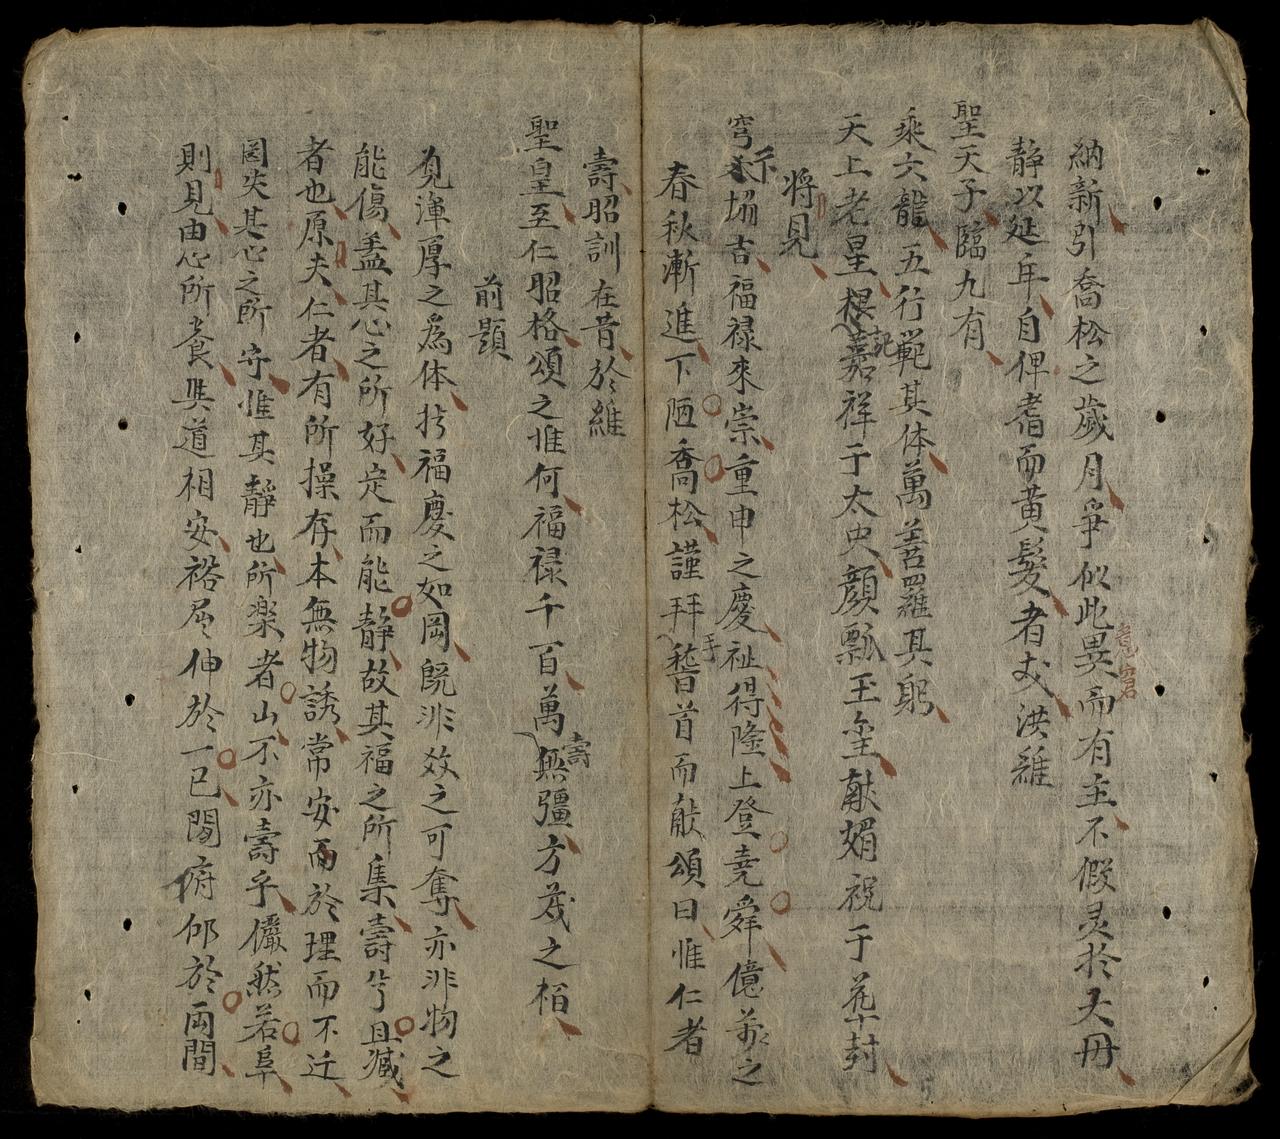 納新引喬松之歲月爭似此昃而有主不假灵於大丹
静以延年自俾耆而黄髮者哉洪維
聖天子臨九有
乘六龍五行範其体萬善羅其躬
天上老星根記嘉祥于太史顔瓢玉金献媚祝于花封
將見
穹示場吉福禄來崇重申之慶祉得隆上登堯舜億萬之
春秋漸進下陋喬松謹拜手稽首而献頌曰惟仁者
壽昭訓在昔於維
聖皇至仁昭格頌之惟何福禄千百萬壽無彊方茂之栢
前題
覓渾厚之為体於福慶之如岡既非效之可奪亦非物之
能傷盖其心之所好定而能静故其福之所集壽且臧
者也原夫仁者有所操存本無物誘常安而於理而不迁
罔失其心之所守惟其静也所楽者山不亦壽乎儼然若阜
則見由心所養與道相安裕屈伸於一已間俯仰於両間